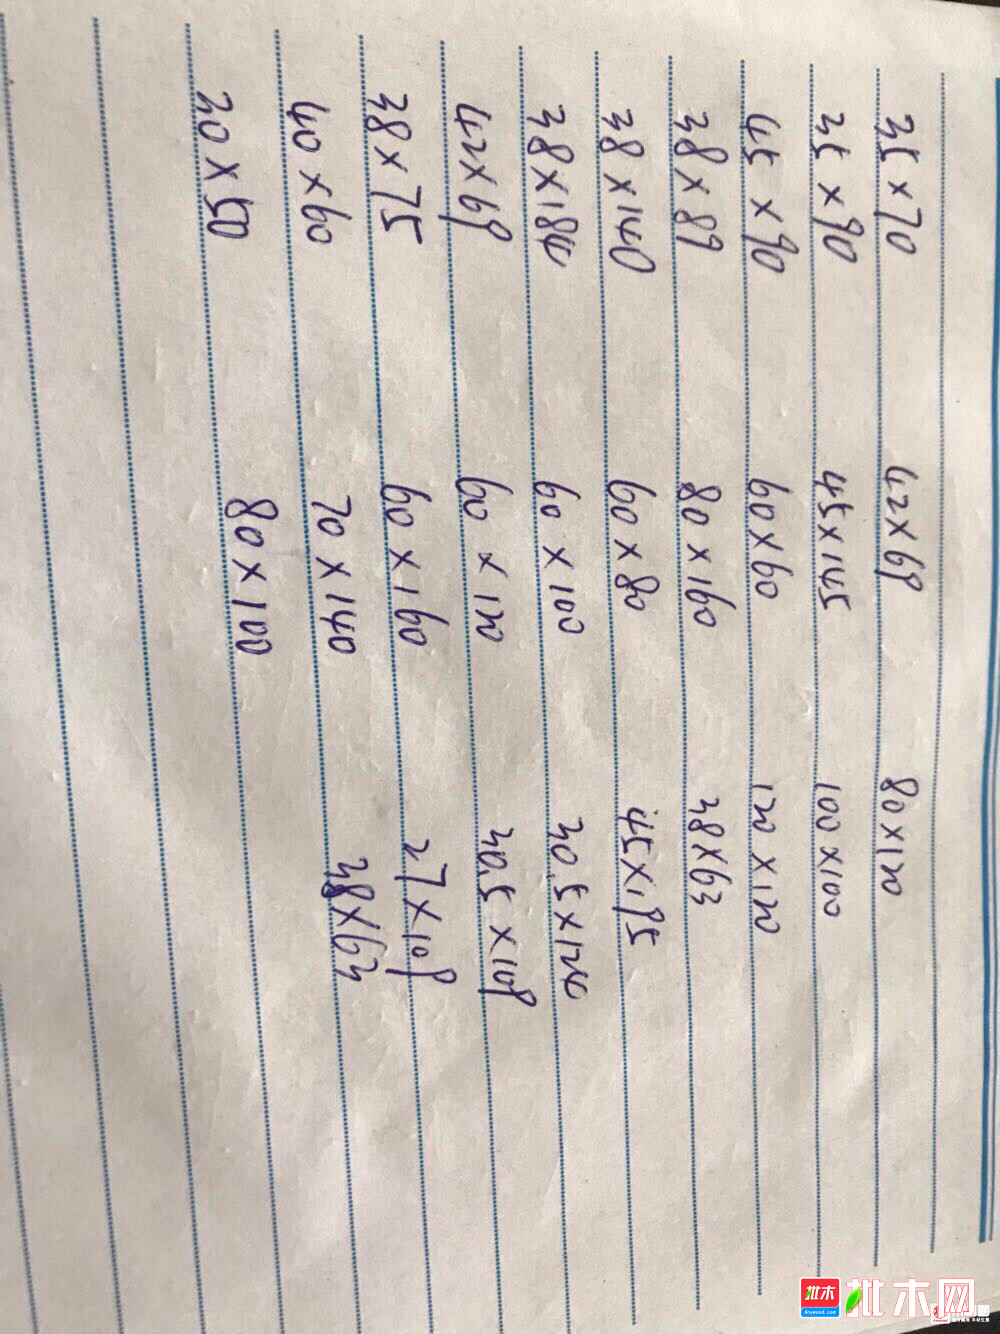 35×70 42×68 80×120
35×90 45×145 100×100
45×90 60×60 120×120
38×89 80×160 38×63
38×140 60×80 45×195
38×184 60×100 30.5×124
42×69 60×120 30.5×108
38×75 60×160 27×108
40×60 70×140 38×63
30×50 80×100
批木 批木网
Anywood.com